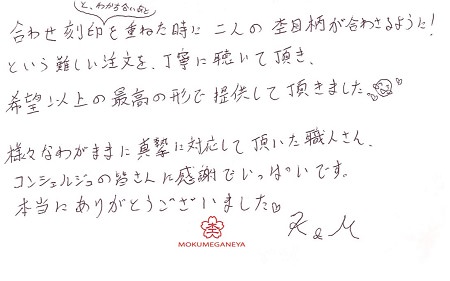 と、わがち合い石と
合わせ刻印を重ねた時に二人の杢目柄が合わさるように!
という難しい注文を、丁寧に聴いて頂き、
希望以上の最高の形で提供して頂きました
様々なわがままに真摯に対応して頂いた職人さん、
コンシェルジュの皆さんに感謝でいっぱいです。
本当にありがとうございました
K & M
MOKUMEGANEYA